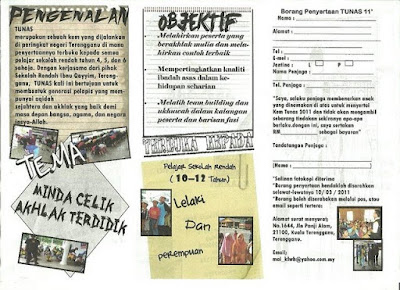 PENGENALAN
TUNAS
merupakan sebuah kem yang dijalankan
di peringkat negeri Terengganu di mana
penyertaannya terbuka kepada semua
pelajar sekolah rendah tahun 4, 5, dan 6
sahaja. Dengan kerjasama dari pihak
Sekolah Rendah Ibnu Qayyim, Tereng-
ganu, TUNAS kali ini bertujuan untuk
membentuk generasi pelapis yang mem-
punyai aqidah
sejahtera dan akhlak yang baik demi
masa depan bangsa, agama, dan negara
insya-Allah.
TEMA
MINDA CELIK
AKHLAK TERDIDIK
OBJEKTIF
Melahirkan peserta yang
berakhlak mulia dan mela-
hirkan contoh terbaik
Mempertingkatkan kualiti
ibadah asas dalam ke-
hidupan seharian
Melatih team building dan
ukhuwah dalam kalangan
peserta dan barisan fasi
TERBUKA KEPADA
Pelajar Sekolah Rendah
(10-12 Tahun)
Lelaki
Dan
perempuan
Borang Penyertaan TUNAS 11'
Nama :
Alamat :
Tel :
E-mail :
Jantina : L P
Nama Penjaga :
Tel. Penjaga :
"Saya, selaku penjaga membenarkan anak
yang dinamakan di atas untuk menyertai
Kem Tunas 2011 dan tidak akan mengambil
sebarang tindakan sekiranya apa-apa
berlaku.dengan ini, saya sertakan
RM sebagai bayaran"
Tandatangan Penjaga :
(Nama:
*Salinan fotokopi diterima
*Borang penyertaan hendaklah diserahkan
selewat-lewatnya 10/03/2011
*Borang boleh diserahkan melalui pos, atau
email seperti tertera:
Alamat surat menyurat:
No.1644, Jln Panji Alam,
21100, Kuala Terengganu,
Terengganu.
Email: